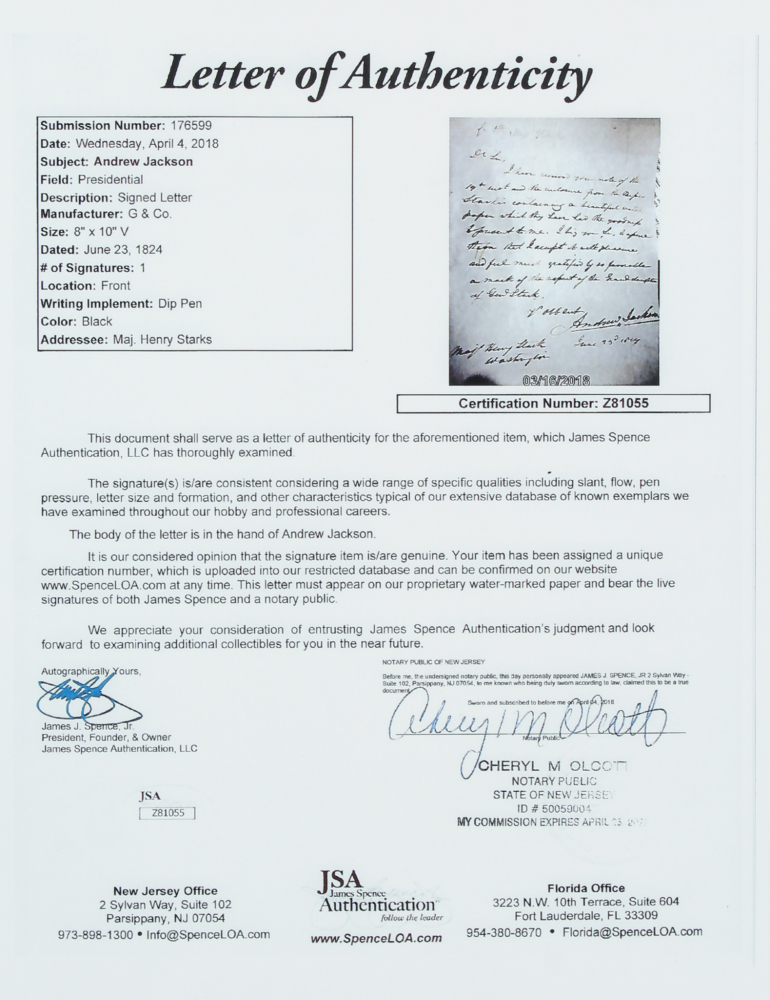 Letter of Authenticity
Submission Number: 176599
Date: Wednesday, April 4, 2018
Subject: Andrew Jackson
Field: Presidential
Description: Signed Letter
Manufacturer: G & Co.
Size: 8" x 10" V
Dated: June 23, 1824
# of Signatures: 1
Location: Front
Writing Implement: Dip Pen
Color: Black
Addressee: Maj. Henry Starks
Dr Sir,
I have received your note of the
a mark of the respect of the
of Genl Stark.
Andrew Jackson
Washington
03/16/2018
Certification Number: Z81055
This document shall serve as a letter of authenticity for the aforementioned item, which James Spence
Authentication, LLC has thoroughly examined.
The signature(s) is/are consistent considering a wide range of specific qualities including slant, flow, pen
pressure, letter size and formation, and other characteristics typical of our extensive database of known exemplars we
have examined throughout our hobby and professional careers.
The body of the letter is in the hand of Andrew Jackson.
It is our considered opinion that the signature item is/are genuine. Your item has been assigned a unique
certification number, which is uploaded into our restricted database and can be confirmed on our website
www.SpenceLOA.com at any time. This letter must appear on our proprietary water-marked paper and bear the live
signatures of both James Spence and a notary public.
We appreciate your consideration of entrusting James Spence Authentication's judgment and look
forward to examining additional collectibles for you in the near future.
Autographically Yours,
James J. Spence, Jr.
President, Founder, & Owner
James Spence Authentication, LLC
JSA
Z81055
NOTARY PUBLIC OF NEW JERSEY
Before me, the undersigned notary public, this day personally appeared JAMES J. SPENCE, JR 2 Sylvan Way -
Suite 102, Parsippany, NJ 07054, to me known who being duly sworn according to law, claimed this to be a true
document.
Sworn and subscribed to before me on April 04, 2018
Cheryl M Olcott
Notary Public
CHERYL M OLCOTT
NOTARY PUBLIC
STATE OF NEW JERSEY
ID # 50059004
MY COMMISSION EXPIRES APRIL
New Jersey Office
2 Sylvan Way, Suite 102
Parsippany, NJ 07054
973-898-1300 • Info@SpenceLOA.com
JSA
James Spence
Authentication
follow the leader
www.SpenceLOA.com
Florida Office
3223 N.W. 10th Terrace, Suite 604
Fort Lauderdale, FL 33309
954-380-8670 • Florida@SpenceLOA.com